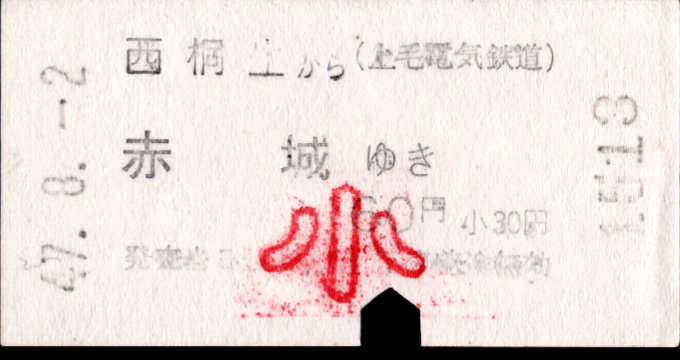 47.8.-2
西桐生から(上毛電気鉄道)
赤城ゆき
60円 小30円
小
1513